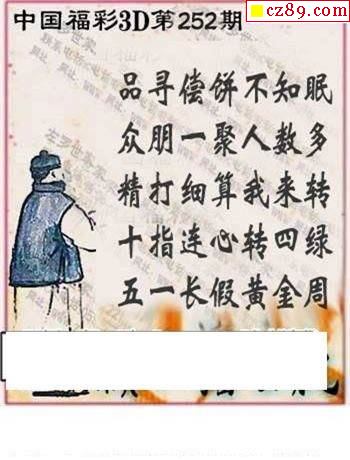 cz89.com
中国福彩3D第252期
品寻偿饼不知眠
众朋一聚人数多
精打细算我来转
十指连心转四绿
五一长假黄金周